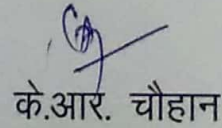 के.आर. चौहान